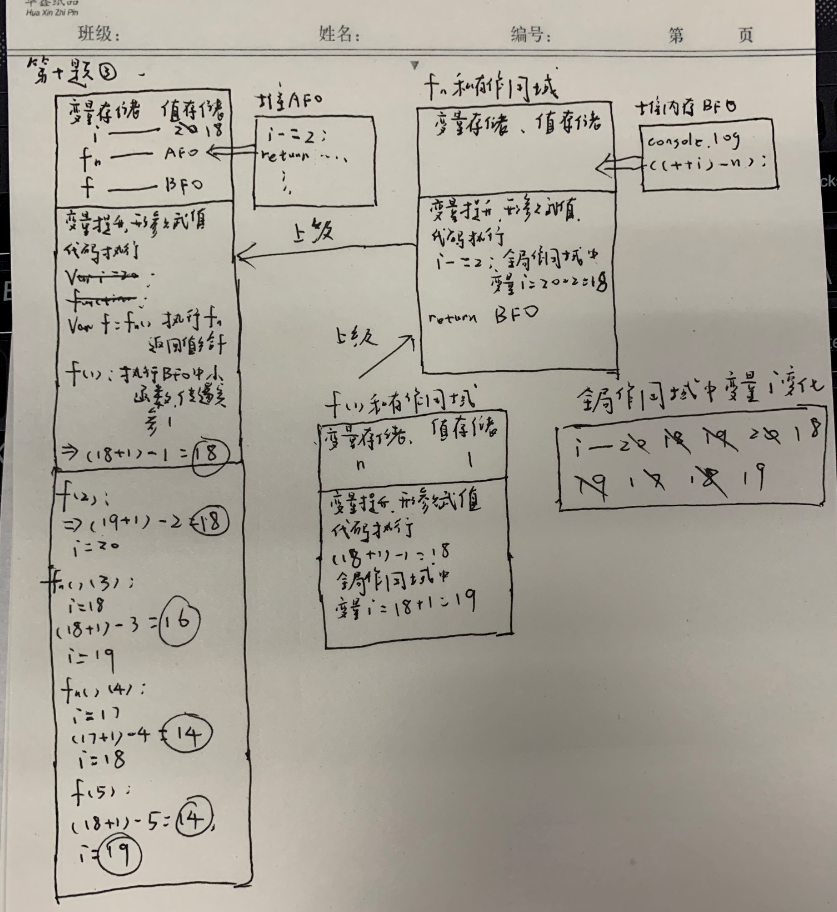 华鑫纸品
Hua Xin Zhi Pin
班级: 姓名: 编号: 第 页
第十题③
变量存储 值存储
i 20 18
fn AF0
f BF0
变量提升,形参赋值
代码执行
Var i=20;
function;
Var f=fn() 执行fn
返回值给f
f(1): 执行BF0中小
函数,传递实
参1
=>(18+1)-1=18
f(2):
=>(19+1)-2=18
i=20
fn()(3):
i=18
(18+1)-3=16
i=19
fn()(4):
i=17
(17+1)-4=14
i=18
f(5):
(18+1)-5=14,
i=19
堆AF0
i-=2;
return ....
};
上级
fn私有作用域
变量存储、值存储
变量提升,形参赋值,
代码执行
i-=2;全局作用域中
变量i=20-2=18
return BF0
堆内存BF0
console.log
((++i)-n);
上级
f(1)私有作用域
变量存储、值存储
n 1
变量提升,形参赋值
代码执行
(18+1)-1=18
全局作用域中
变量i=18+1=19
全局作用域中变量i变化
i—20 18 19 20 18
19 17 18 19